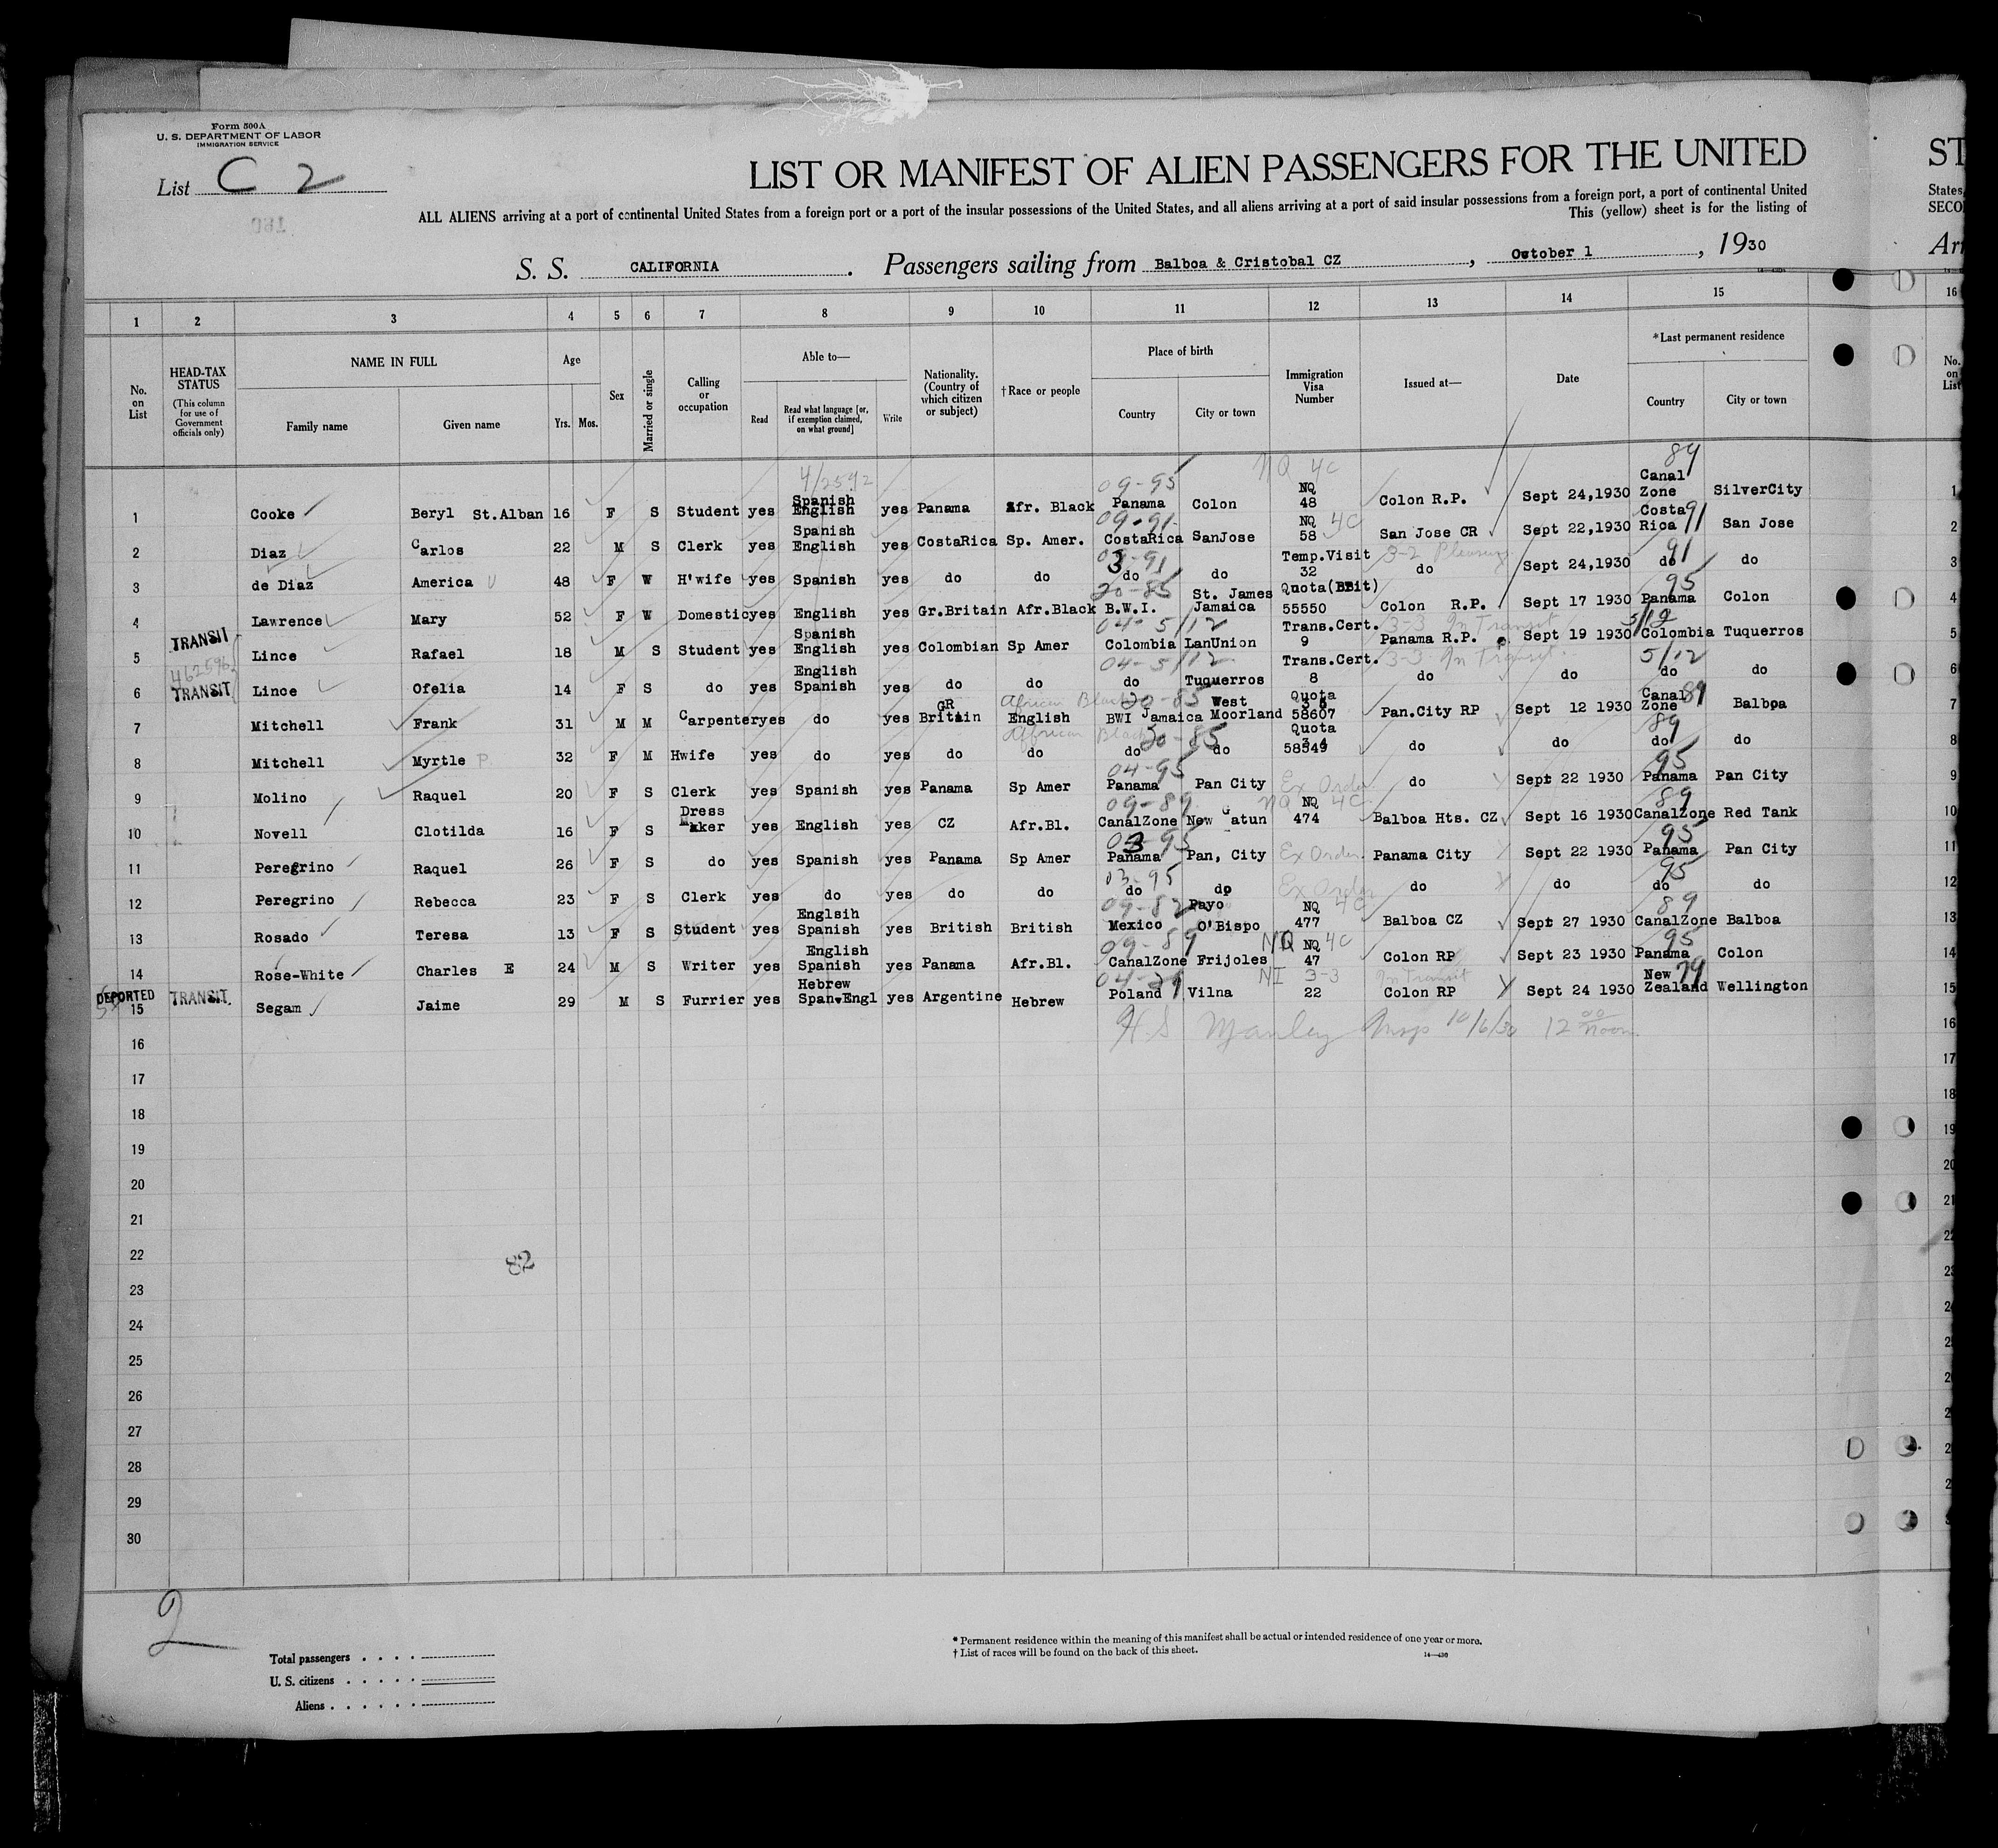 Form 500A
U. S. DEPARTMENT OF LABOR
IMMIGRATION SERVICE
List C 2
LIST OR MANIFEST OF ALIEN PASSENGERS FOR THE UNITED
ST
ALL ALIENS arriving at a port of continental United States from a foreign port or a port of the insular possessions of the United States, and all aliens arriving at a port of said insular possessions from a foreign port, a port of continental United
States
This (yellow) sheet is for the listing of
SECO
S. S. CALIFORNIA. Passengers sailing from Balboa & Cristobal CZ, October 1, 1930
Arr
1 2 3 4 5 6 7 8 9 10 11 12 13 14 15 16
No. on List
HEAD-TAX STATUS (This column for use of Government officials only)
NAME IN FULL Family name Given name
Age Yrs. Mos.
Sex
Married or single
Calling or occupation
Able to— Read Read what language [or, if exemption claimed, on what ground] Write
Nationality. (Country of which citizen or subject)
†Race or people
Place of birth Country City or town
Immigration Visa Number
Issued at—
Date
*Last permanent residence Country City or town
No. on List
4/2592 09-95 NQ 4c 89
1 Cooke Beryl St.Alban 16 F S Student yes Spanish English yes Panama Afr. Black Panama Colon NQ 48 Colon R.P. Sept 24,1930 Canal Zone SilverCity 1
09-91 4c 91
2 Diaz Carlos 22 M S Clerk yes Spanish English yes CostaRica Sp. Amer. CostaRica SanJose NQ 58 San Jose CR Sept 22,1930 Costa Rica San Jose 2
03-91 3-2 Pleasure 91
3 de Diaz America 48 F W H'wife yes Spanish yes do do do do Temp.Visit 32 do Sept 24,1930 do do 3
20-85 95
4 Lawrence Mary 52 F W Domestic yes English yes Gr.Britain Afr.Black B.W.I. St. James Jamaica Quota(BRit) 55550 Colon R.P. Sept 17 1930 Panama Colon 4
04-5/12 3-3 In Transit 5/12
TRANSIT 5 Lince Rafael 18 M S Student yes Spanish English yes Colombian Sp Amer Colombia LanUnion Trans.Cert. 9 Panama R.P. Sept 19 1930 Colombia Tuquerros 5
462596 04-5/12 3-3 In Transit 5/12
TRANSIT 6 Lince Ofelia 14 F S do yes English Spanish yes do do do Tuquerros Trans.Cert. 8 do do do do 6
African Black 20-85 89
7 Mitchell Frank 31 M M Carpenter yes do yes GR Britain English BWI Jamaica West Moorland Quota 58607 Pan.City RP Sept 12 1930 Canal Zone Balboa 7
African Black 20-85 89
8 Mitchell Myrtle P. 32 F M Hwife yes do yes do do do do Quota 58549 do do do do 8
04-95 95
9 Molino Raquel 20 F S Clerk yes Spanish yes Panama Sp Amer Panama Pan City Ex Order do Sept 22 1930 Panama Pan City 9
09-89 NQ 4c 89
10 Novell Clotilda 16 F S Dress Maker yes English yes CZ Afr.Bl. CanalZone New Gatun NQ 474 Balboa Hts. CZ Sept 16 1930 CanalZone Red Tank 10
03-95 95
11 Peregrino Raquel 26 F S do yes Spanish yes Panama Sp Amer Panama Pan, City Ex Order Panama City Sept 22 1930 Panama Pan City 11
03-95 95
12 Peregrino Rebecca 23 F S Clerk yes do yes do do do do Ex Order do do do do 12
09-82 4c 89
13 Rosado Teresa 13 F S Student yes Englsih Spanish yes British British Mexico Payo O'Bispo NQ 477 Balboa CZ Sept 27 1930 CanalZone Balboa 13
09-89 NQ 4c 95
14 Rose-White Charles E 24 M S Writer yes English Spanish yes Panama Afr.Bl. CanalZone Frijoles NQ 47 Colon RP Sept 23 1930 Panama Colon 14
NI 3-3 In Transit 79
DEPORTED TRANSIT 15 Segam Jaime 29 M S Furrier yes Hebrew Span.Engl yes Argentine Hebrew Poland Vilna 22 Colon RP Sept 24 1930 New Zealand Wellington 15
H.S Manley Insp 10/6/30 12 00 noon
16 16
17 17
18 18
19 19
20 20
21 21
22 22
82
23 23
24
25
26
27
28
29
30
2
Total passengers
U. S. citizens
Aliens
* Permanent residence within the meaning of this manifest shall be actual or intended residence of one year or more.
† List of races will be found on the back of this sheet.